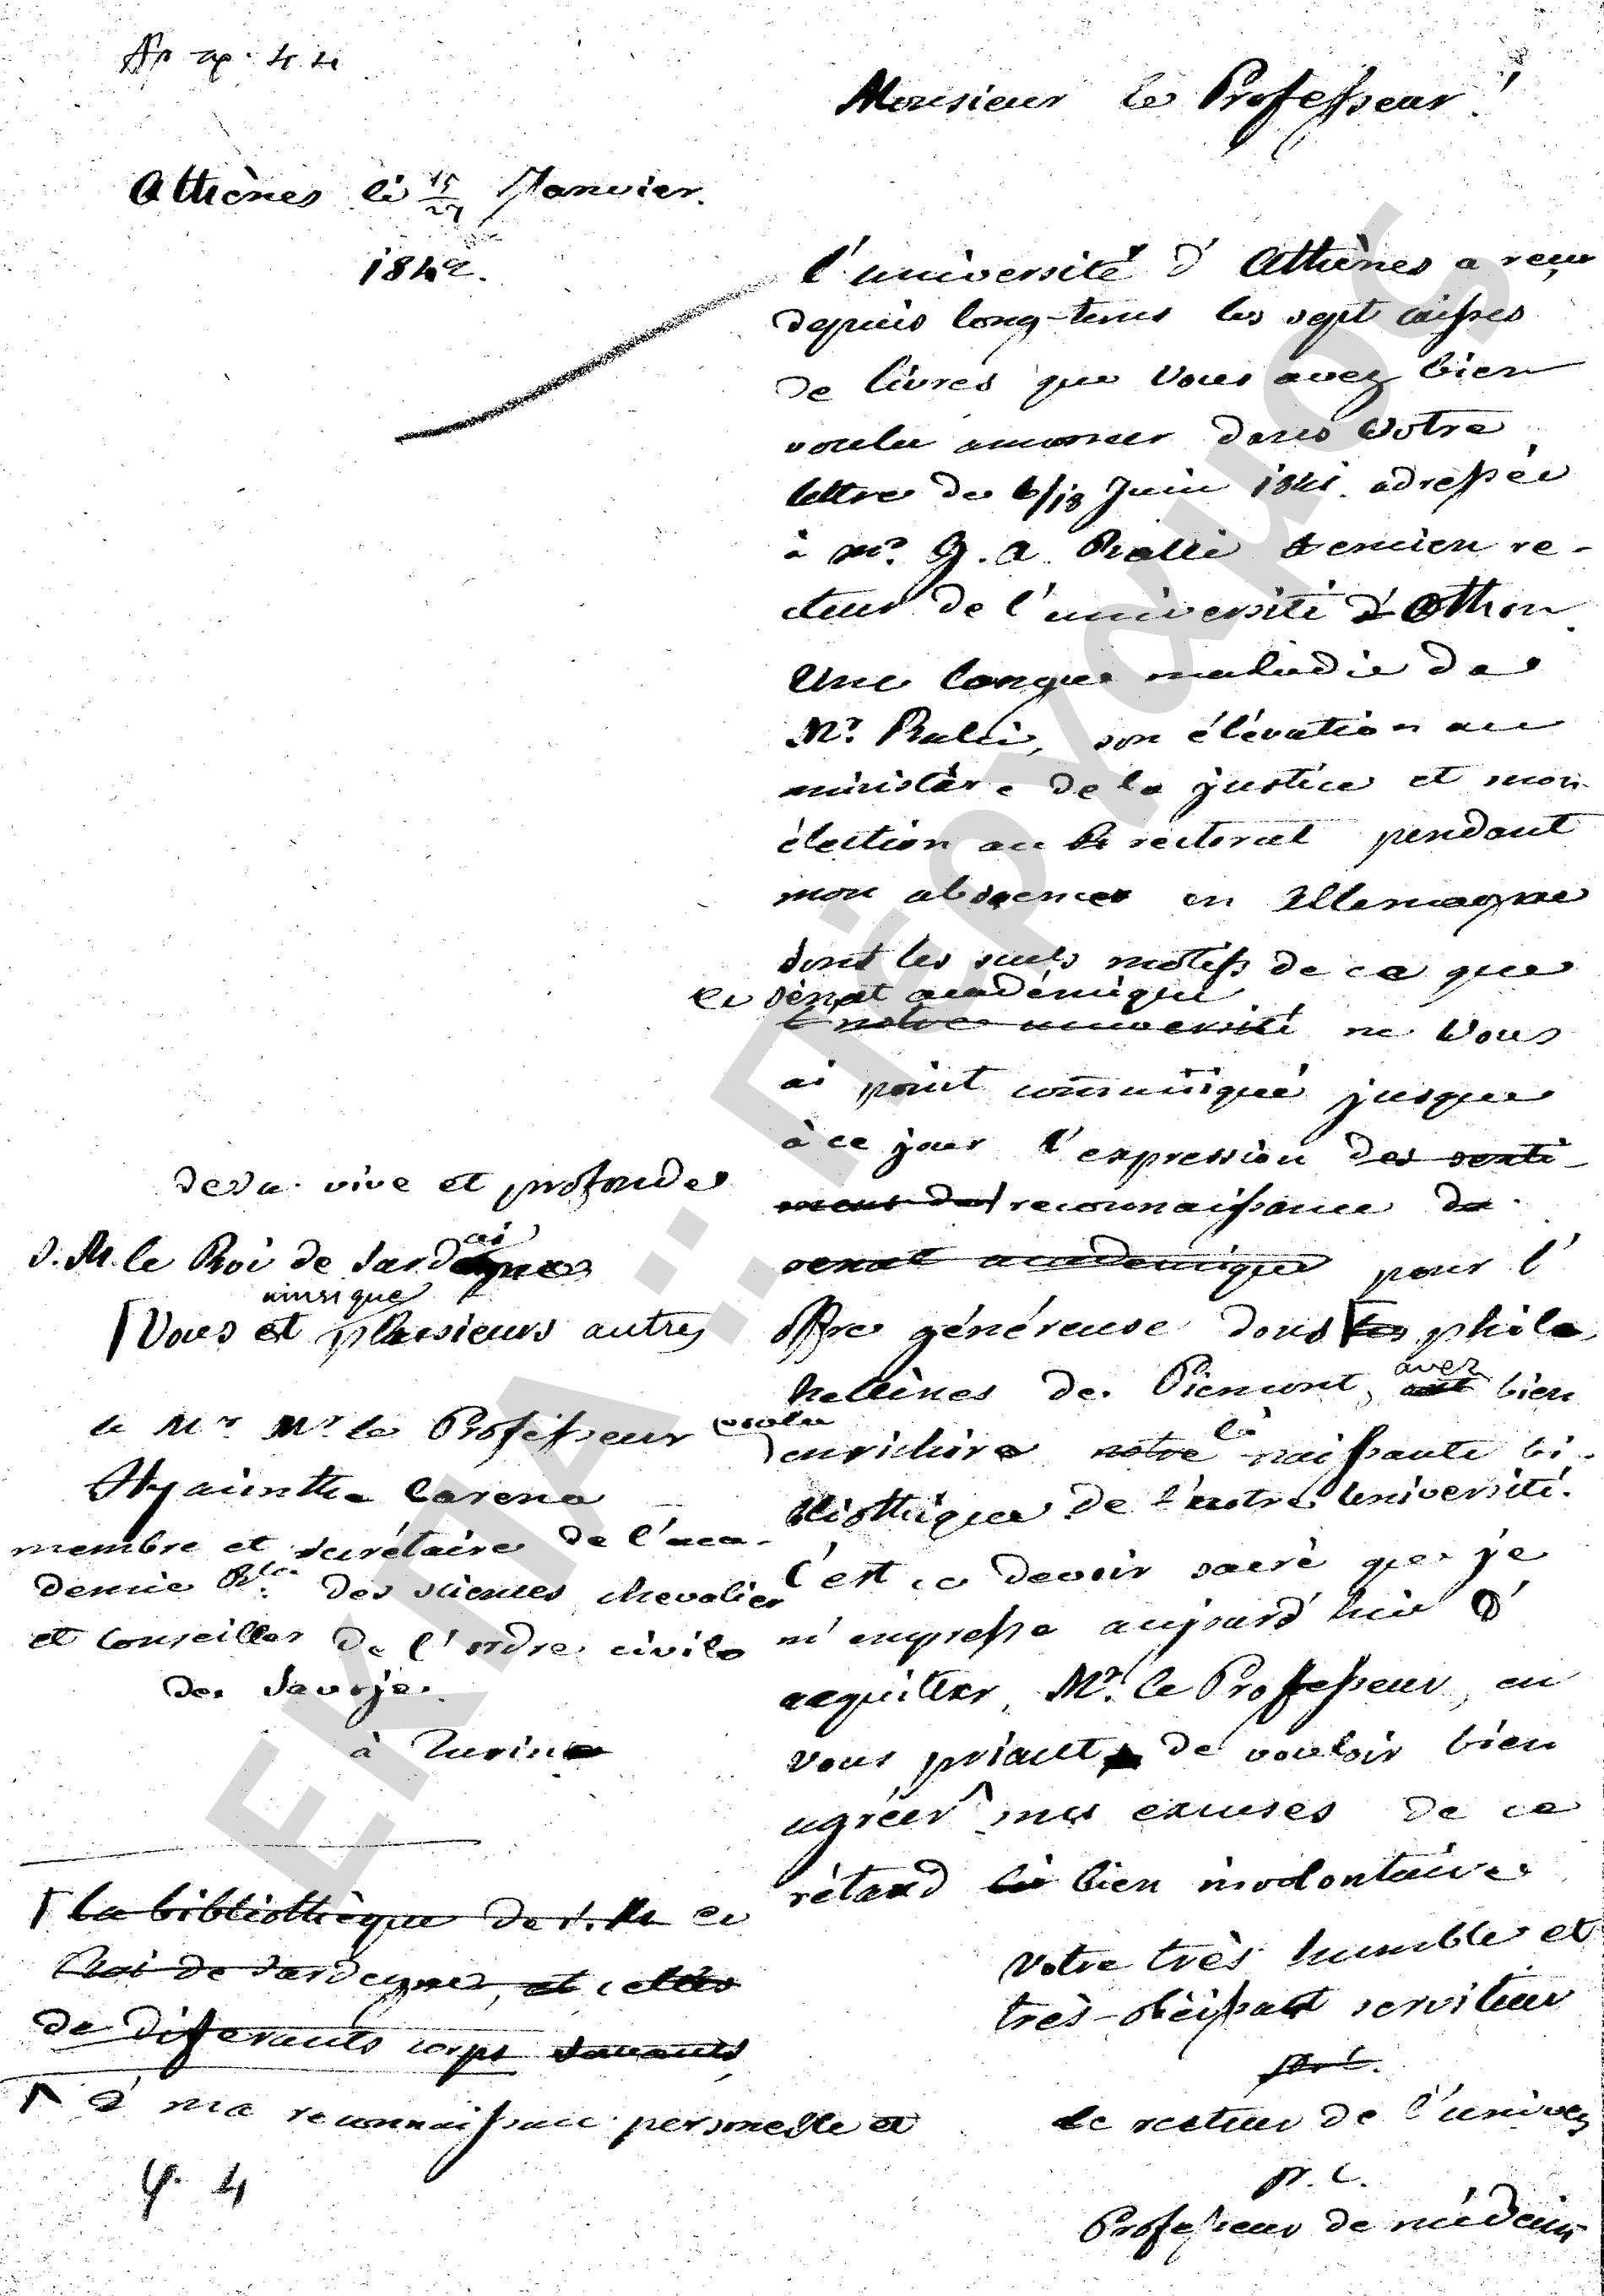 Monsieur le Professeur!
Athènes le 15/27 Janvier.
1842.
l'université d'Athènes a reçu
depuis long-tems les sept caisses
de livres que Vous avez bien
voulu annoncer dans Votre
lettre de 6/18 Juin 1841 adressée
à Mr. G. A. Ralli ancien re-
cteur de l'université d'Othon
Une longue maladie de
Mr. Ralli, son élévation au
ministère de la justice et mon
élection au rectorat pendant
mon absence en Allemagne
sont les seuls motifs de ce que
le sénat académique
notre université ne Vous
ai point communiqué jusque
à ce jour l'expression des senti-
mens de reconnaissance de
de sa vive et profonde
senat academique pour l'
offre généreuse dont les phil
hellènes de Piemont, avez bien
voulu
enrichire notre la naissante bi-
bliothèque de l'notre Université.
C'est ce devoir sacré que je
m'empresse aujourd'hui d'
acquitter, Mr. le Professeur, en
vous priant de vouloir bien
agréer mes excuses de ce
rétard bien involontaire
Votre très humble et
très-obéissant serviteur
le recteur de l'univer
Professeur de médecin
S. M. le Roi de Sardaigne
ainsi que
Vous et plusieurs autres
a Mr Mr le Professeur
Hyacinthe Carena
membre et secrétaire de l'aca-
demie Rle. des sciences chevalier
et conseiller de l'ordre civile
de Savoje.
à Turin
La bibliothèque de S. M. le
Roi de Sardegne, et celles
de diferents corps savants
ma reconnaissance personelle et
φ. 4
ΕΚΠΑ...Πέργαμος